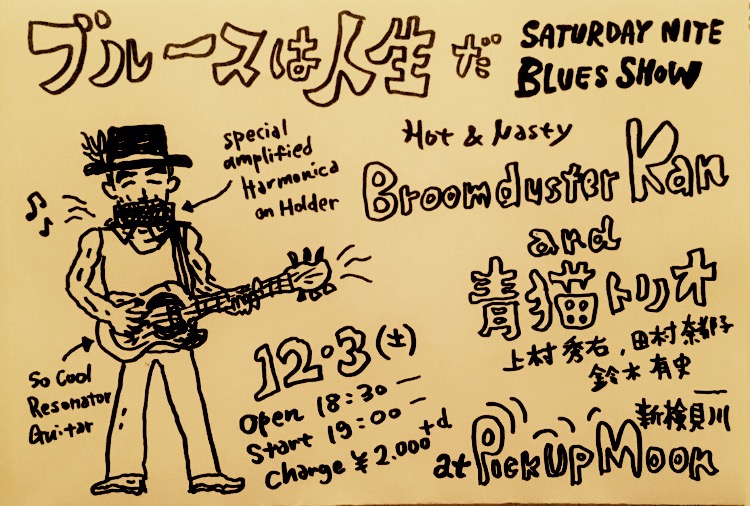 ブルースは人生だ
SATURDAY NITE
BLUES SHOW
special
amplified
Harmonica
on Holder
Hot & Nasty
Broomduster Kan
and
青猫トリオ
上村秀右、田村奈都子
鈴木有史
So Cool
Resonator
Guitar
12・3(土)
Open 18:30-
Start 19:00-
Charge ¥2.000+d
新検見川
at PickUp Moon